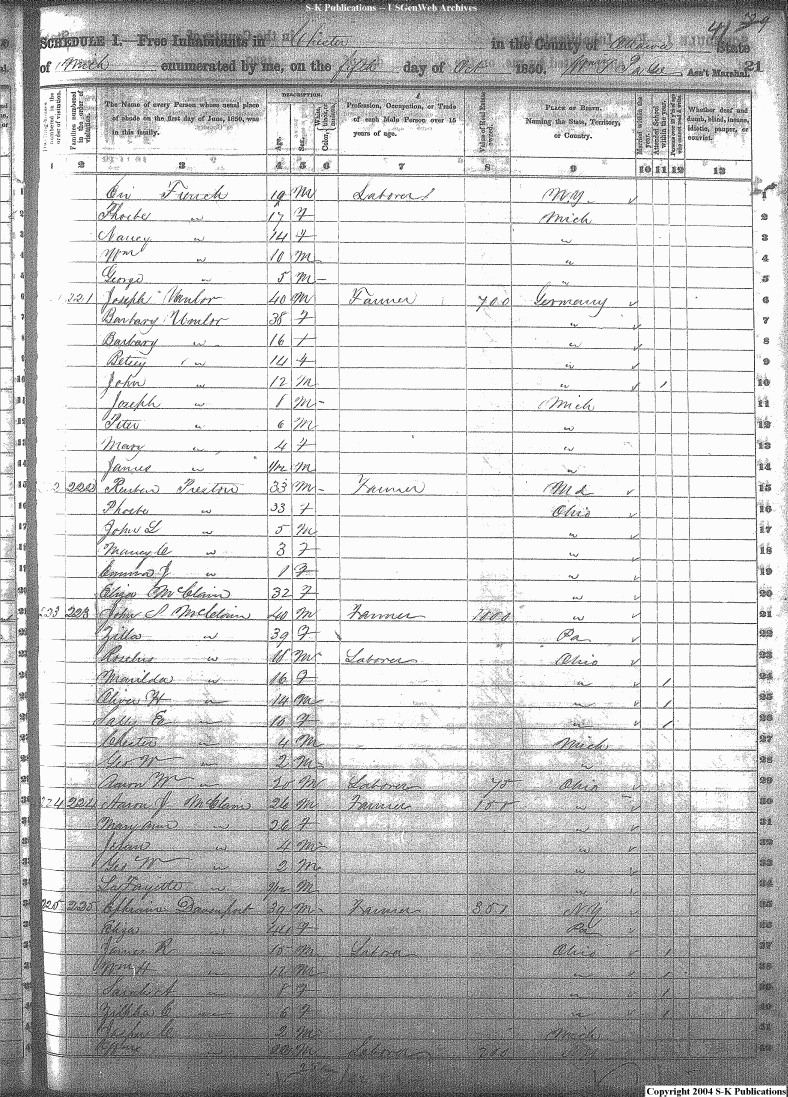 S-K Publications -- USGenWeb Archives
SCHEDULE I.—Free Inhabitants in Chester in the County of Ottawa State
of Mich enumerated by me, on the fifth day of Oct 1850. Ass't Marshal. 21
Families numbered in the order of visitation.
The Name of every Person whose usual place of abode on the first day of June, 1850, was in this family.
DESCRIPTION.
Age.
Sex.
Profession, Occupation, or Trade of each Male Person over 15 years of age.
Value of Real Estate owned.
PLACE OF BIRTH. Naming the State, Territory, or Country.
Married within the year.
Attended School within the year.
Whether deaf and dumb, blind, insane, idiotic, pauper, or convict.
1 2 3 4 5 6 7 8 9 10 11 12 13
French 19 M Laborer NY 1
Phoebe " 17 F Mich 2
Nancy " 14 F " 3
Wm " 10 M " 4
George " 5 M " 5
221 Joseph Umlor 40 M Farmer 700 Germany 6
Barbary Umlor 38 F " 7
Barbary " 16 F " 8
Betsey " 14 F " 9
John " 12 M " 1 10
Joseph " 8 M Mich 11
Peter " 6 M " 12
Mary " 4 F " 13
James " M " 14
222 Reuben Preston 33 M Farmer Md 15
Phoebe " 33 F Ohio 16
John L " 5 M " 17
Nancy C " 3 F " 18
Emma J " 1 F " 19
Eliza McClain 32 F " 20
223 John S McClain 40 M Farmer 1000 " 21
Zilla " 39 F Pa 22
" 18 M Laborer Ohio 23
Marilda " 16 F " 1 24
Oliver H " 14 M " 1 25
Sally E " 10 F " 1 26
Chester " 4 M Mich 27
Geo W " 2 M " 28
Aaron W " 20 M Laborer 75 Ohio 29
224 224 Aaron J McClain 26 M Farmer 100 " 30
Mary Ann " 26 F "
" 4 M "
Geo W " 2 M "
LaFayette " M "
225 225 Ephraim Davenport 39 M Farmer NY
Eliza " F Pa
James R " 15 M Laborer Ohio 1
Wm H " 12 M " 1
Sarah A " 8 F " 1
C " 6 F " 1
Joseph C " 2 M Mich
" M Laborer
Copyright 2004 S-K Publications